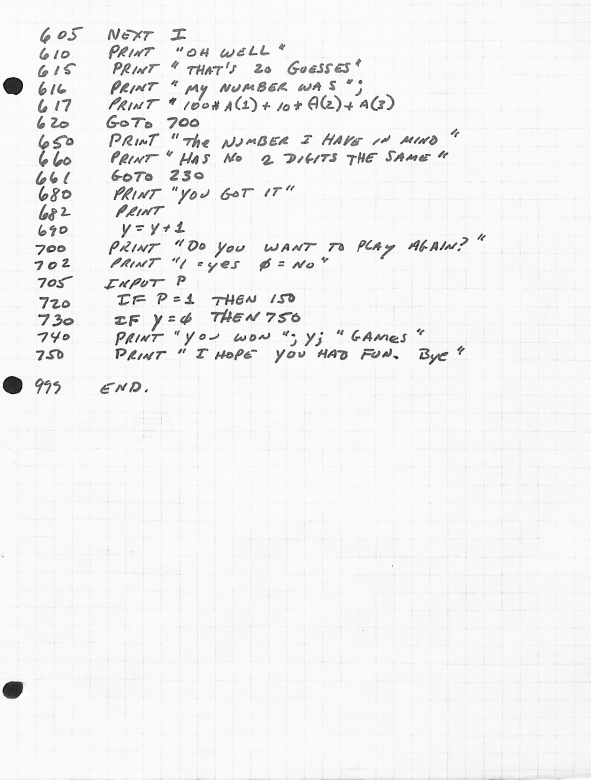 605 NEXT I
610 PRINT "OH WELL"
615 PRINT "THAT'S 20 GUESSES"
616 PRINT "MY NUMBER WAS";
617 PRINT " 100* A(1) + 10* A(2) + A(3)
620 GOTO 700
650 PRINT "The NUMBER I HAVE IN MIND "
660 PRINT "HAS NO 2 DIGITS THE SAME "
661 GOTO 230
680 PRINT "YOU GOT IT"
682 PRINT
690 Y = Y + 1
700 PRINT "DO YOU WANT TO PLAY AGAIN? "
702 PRINT "1 = yes 0 = NO"
705 INPUT P
720 IF P = 1 THEN 150
730 IF Y = 0 THEN 750
740 PRINT "YOU WON "; Y; " GAMes "
750 PRINT " I HOPE YOU HAD FUN. Bye "
999 END.